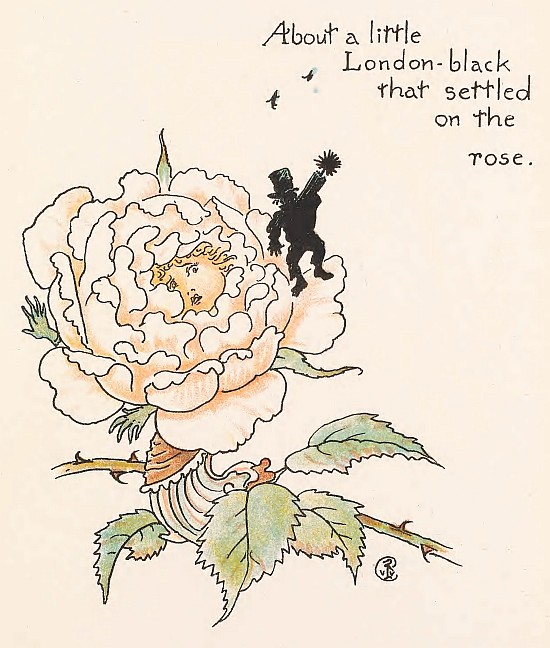 About a little
London-black
that settled
on the
rose.